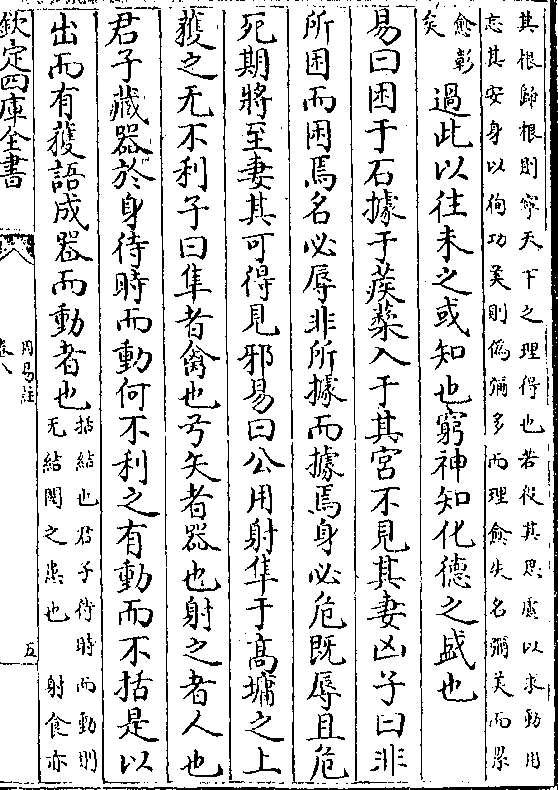 其根歸根則寧天下之理得也若役其思慮以求動用
忘其安身以徇功美則偽彌多而理愈失名彌美而累
愈彰
矣
過此以往未之或知也窮神知化德之盛也
易曰困于石據于蒺藜入于其宮不見其妻凶子曰非
所困而困焉名必辱非所據而據焉身必危既辱且危
死期將至妻其可得見邪易曰公用射隼于高墉之上
獲之无不利子曰隼者禽也弓矢者器也射之者人也
君子藏器於身待時而動何不利之有動而不括是以
出而有獲語成器而動者也
括結也君子待時而動則
无結閡之患也 射食亦
欽定四庫全書
周易註
卷八
五